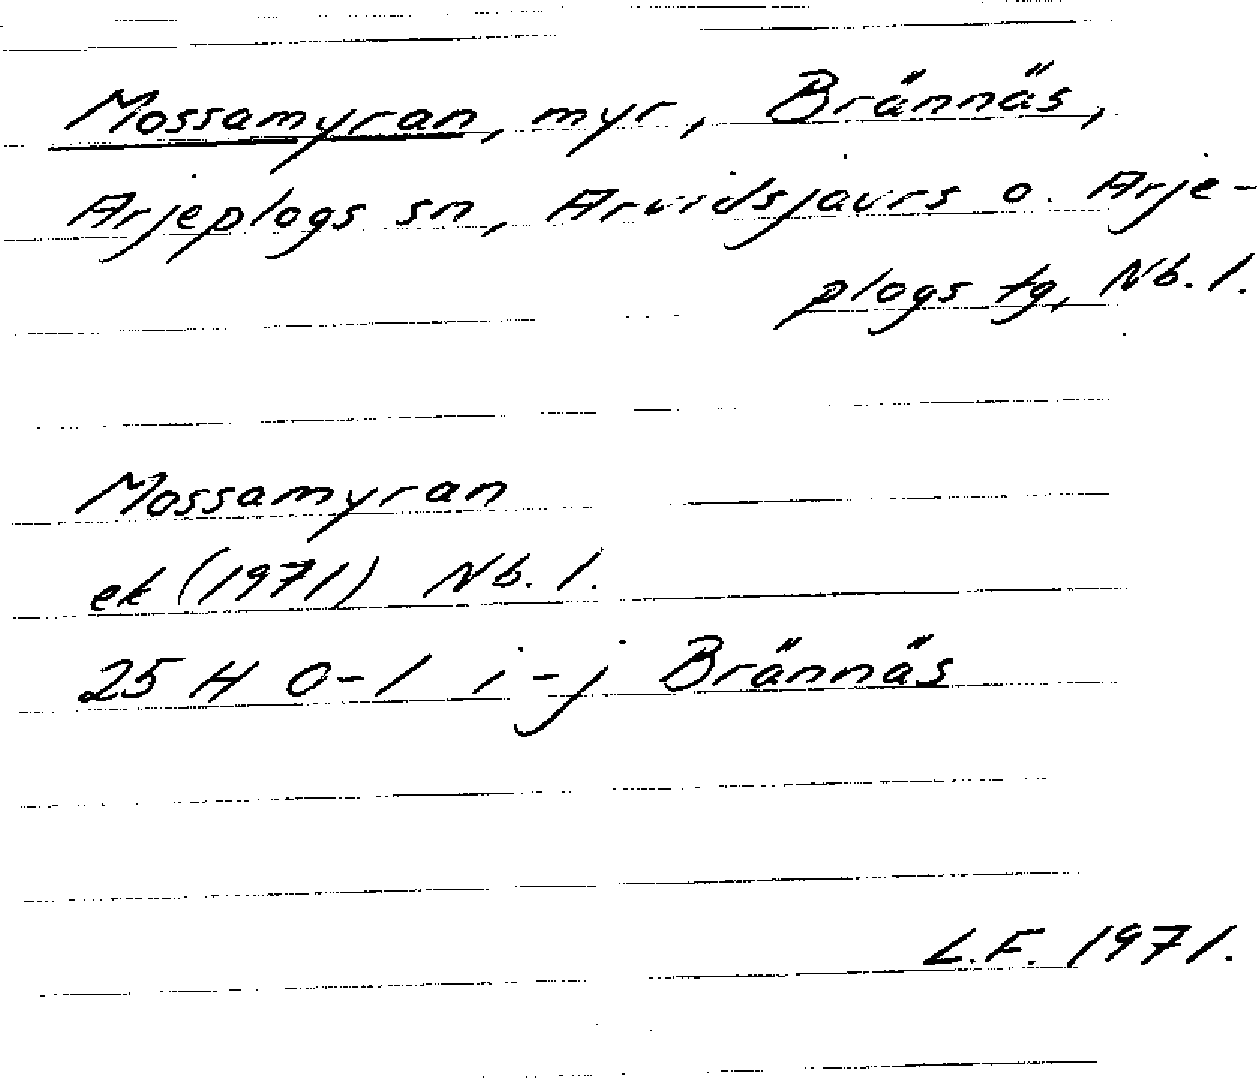 Mossamyran, myr, Brännäs,
Arjeplogs sn, Arvidsjaurs o. Arje-
plogs tg, Nb. l.
Mossamyran
ek (1971) Nb. l.
25 H 0-1 i-j Brännäs
L.F. 1971.